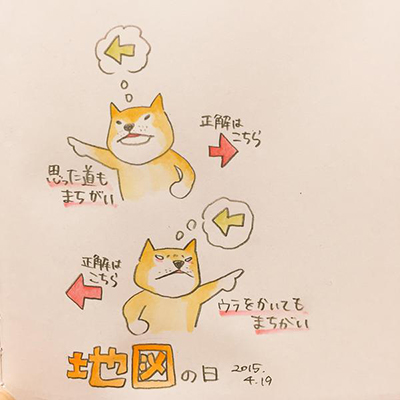 正解は
こちら
思った道も
まちがい
正解は
こちら
ウラをかいても
まちがい
地図の日 2015.
4.19